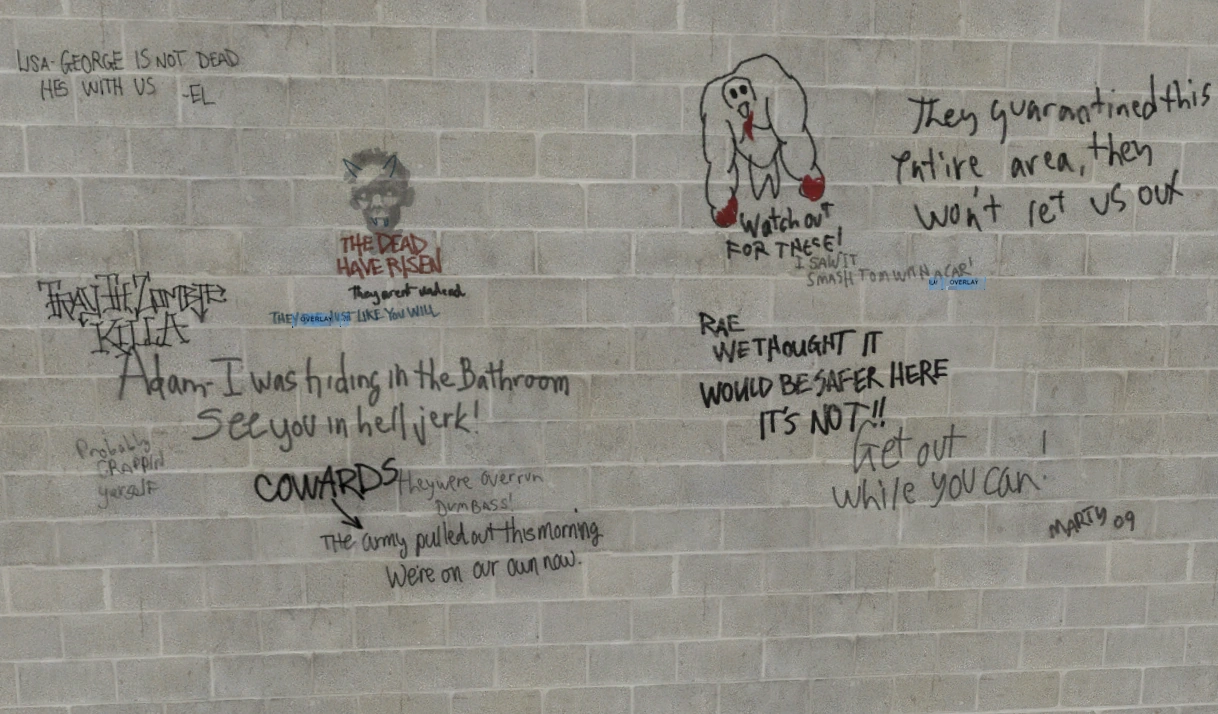 LISA- GEORGE IS NOT DEAD
HES WITH US -EL
THE DEAD
HAVE RISEN
They arent undead
THEY JUST LIKE YOU WILL
OVERLAY
TRAV THE ZOMBIE
KILLA
Adam- I was hiding in the Bathroom
See you in hell jerk!
Probably
CRAPPIN
yerself
COWARDS
they were overrun
DUMBASS!
THE army pulled out this morning
We're on our own now.
Watch out
FOR THESE!
I SAW IT
SMASH TOM WITH A CAR!
OVERLAY
They quarantined this
entire area, they
won't let us out
RAE
WE THOUGHT IT
WOULD BE SAFER HERE
IT'S NOT!!
Get out
while you can!
MARTY 09